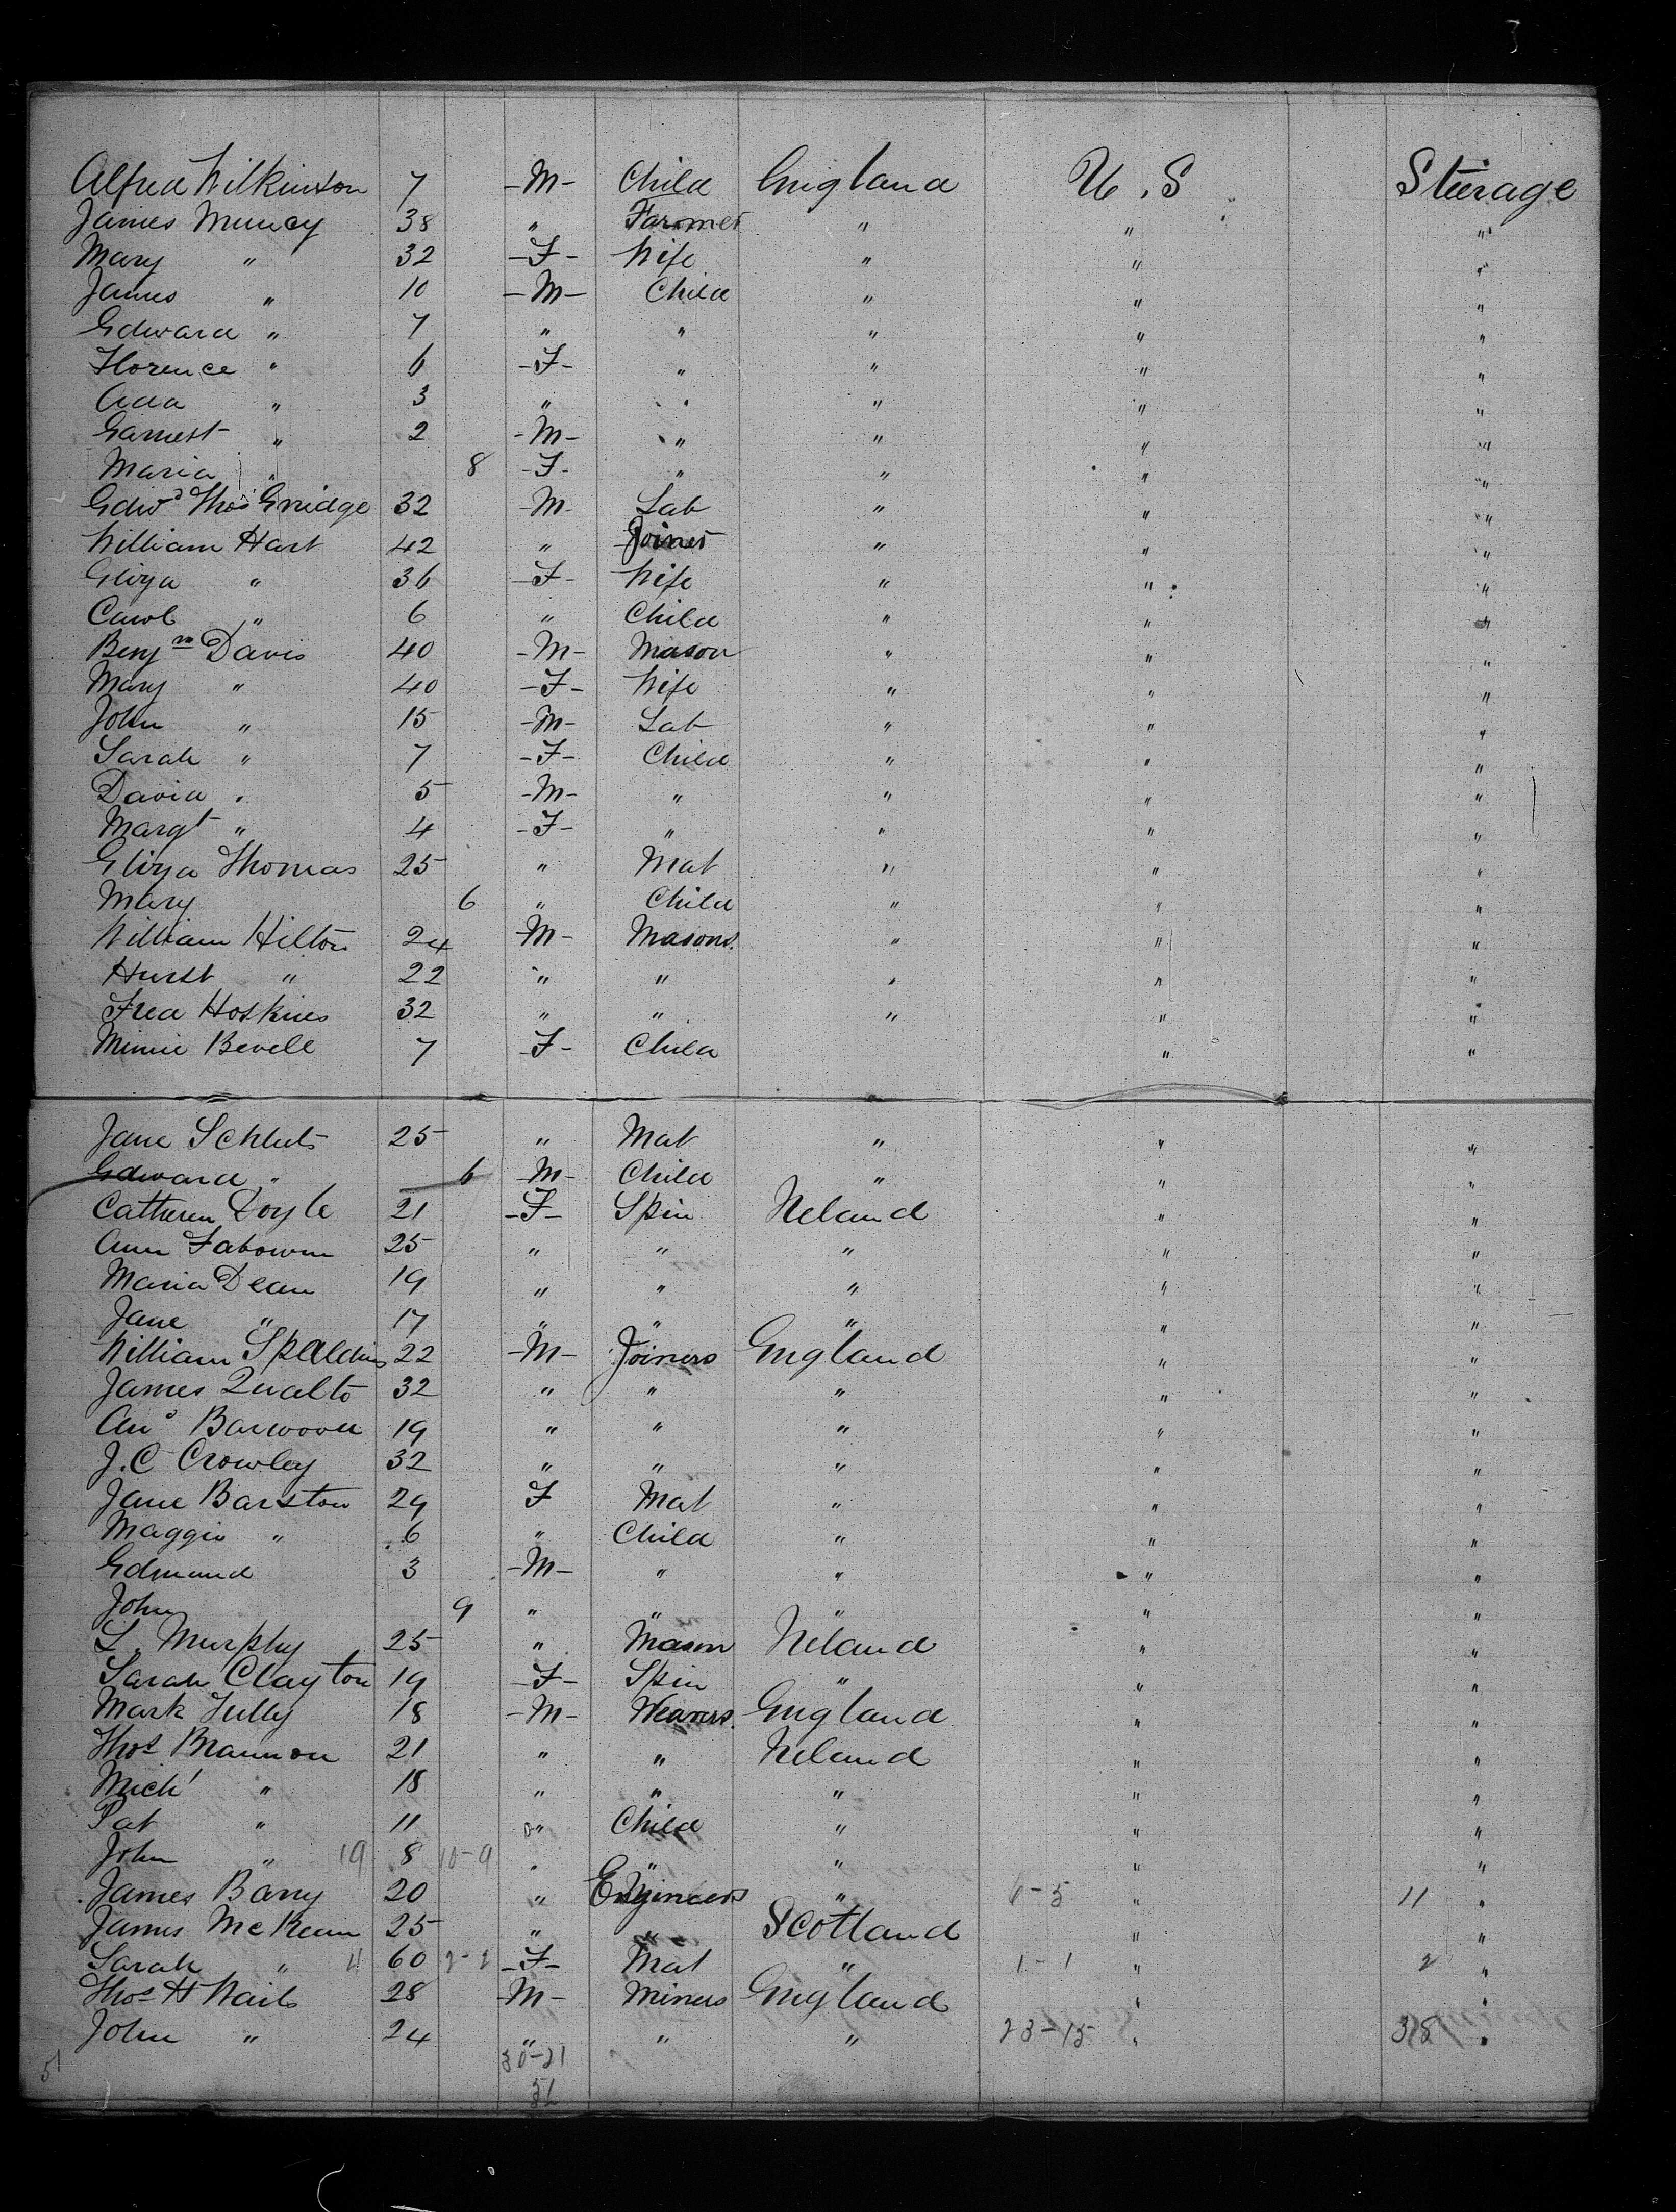 Alfred Wilkinson 7 -M- Child England U.S Steerage
James Muncy 38 " Farmer " " "
Mary " 32 -F- Wife " " "
James " 10 -M- Child " " "
Edward " 7 " " " " "
Florence " 6 -F- " " " "
Ada " 3 " " " " "
Earnest " 2 -M- " " " "
Maria " 8 -F- " " " "
Edwd Thos 32 -M- Lab " " "
William Hart 42 " Joiner " " "
Eliza " 36 -F- Wife " " "
" 6 " Child " " "
Benjn Davis 40 -M- Mason " " "
Mary " 40 -F- Wife " " "
John " 15 -M- Lab " " "
Sarah " 7 -F- Child " " "
David " 5 -M- " " " "
Margt " 4 -F- " " " "
Eliza Thomas 25 " Mat " " "
Mary 6 " Child " " "
William Hilton 24 -M- Masons " " "
Hurst " 22 " " " " "
Fred Hoskins 32 " " " " "
Minnie Bevell 7 -F- Child " "
Jane 25 " Mat " " "
Edward " 6 -M- Child " " "
Catheren Doyle 21 -F- Spin Ireland " "
Ann 25 " " " " "
Maria Dean 19 " " " " "
Jane " 17 " " " " "
William Spalding 22 -M- Joiners England " "
James Qualto 32 " " " " "
Barwood 19 " " " " "
J.C Crowley 32 " " " " "
Jane Barston 29 F Mat " " "
Maggie " 6 " Child " " "
Edmund 3 -M- " " " "
John 9 " " " " "
L. Murphy 25 " Mason Ireland " "
Sarah Clayton 19 -F- Spin " " "
Mark Tully 18 -M- Weavers England " "
Thos Brannon 21 " " Ireland " "
Michl " 18 " " " " "
Pat " 11 " Child " " "
John " 19 8 10-9 " " " " "
James Barry 20 " Engineers " 6-5 " 11 "
James McKean 25 " " Scotland " "
Sarah " 4 60 2-2 -F- Mat " 1-1 " 2 "
Thos H Wails 28 -M- Miners England " "
John " 24 " " " 23-15 " 38 "
51 30-21
51